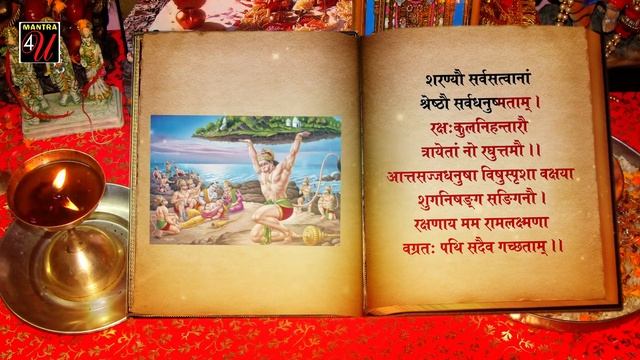 MANTRA
4U
शरण्यौ सर्वसत्वानां
श्रेष्ठौ सर्वधनुष्मताम् ।
रक्षःकुलनिहन्तारौ
त्रायेतां नो रघुत्तमौ ।।
आत्तसज्जधनुषा विषुस्पृशा वक्षया
शुगनिषङ्ग सङिगनौ ।
रक्षणाय मम रामलक्ष्मणा
वग्रतः पथि सदैव गच्छताम् ।।